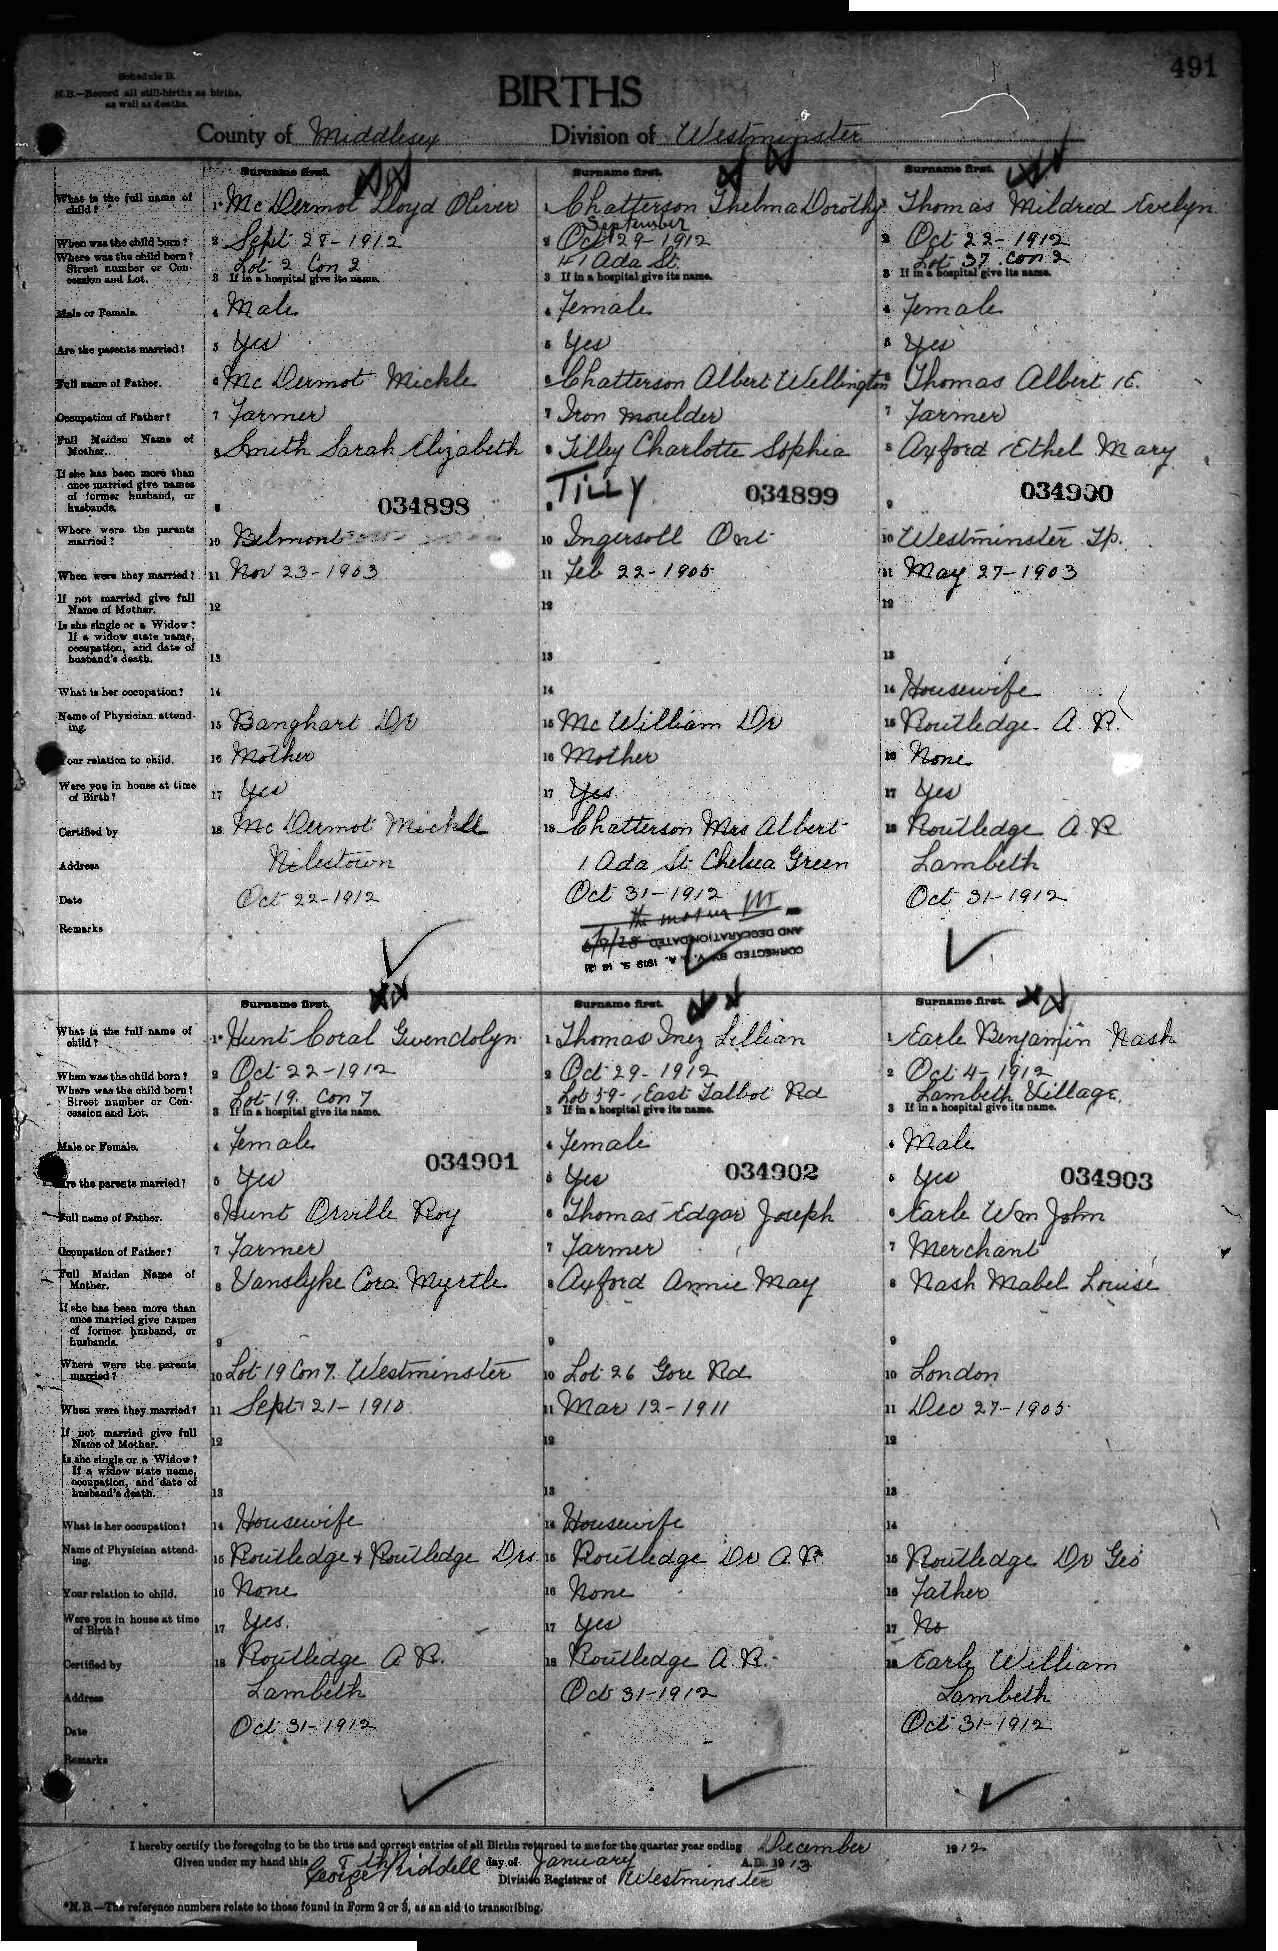 491
Schedule B.
N.B.—Record all still-births as births,
as well as deaths.
BIRTHS
County of Middlesex Division of Westminster
Surname first. Surname first. Surname first.
What is the full name of child? 1* McDermot Lloyd Oliver 1 Chatterson Thelma Dorothy 1 Thomas Mildred Evelyn
September
When was the child born? 2 Sept 28-1912 2 Oct 29-1912 2 Oct 22-1912
Where was the child born? Street number or Concession and Lot. Lot 2 Con 2 1 Ada St. Lot 37 Con 2
3 If in a hospital give its name. 3 If in a hospital give its name. 3 If in a hospital give its name.
Male or Female. 4 Male 4 Female 4 Female
Are the parents married? 5 Yes 5 Yes 5 Yes
Full name of Father. 6 McDermot Mickle 6 Chatterson Albert Wellington 6 Thomas Albert E.
Occupation of Father? 7 Farmer 7 Iron moulder 7 Farmer
Full Maiden Name of Mother. 8 Smith Sarah Elizabeth 8 Tilley Charlotte Sophia 8 Axford Ethel Mary
TILLY
If she has been more than once married give names of former husband, or husbands. 9 034898 9 034899 9 034900
Where were the parents married? 10 Belmont 10 Ingersoll Ont 10 Westminster Tp.
When were they married? 11 Nov 23-1903 11 Feb 22-1905 11 May 27-1903
If not married give full Name of Mother. 12 12 12
Is she single or a Widow? If a widow state name, occupation, and date of husband's death. 13 13 13
What is her occupation? 14 14 14 Housewife
Name of Physician attending. 15 Banghart Dr 15 McWilliam Dr 15 Routledge A. R.
Your relation to child. 16 Mother 16 Mother 16 None
Were you in house at time of Birth? 17 Yes 17 Yes 17 Yes
Certified by 18 McDermot Mickle 18 Chatterson Mrs Albert 18 Routledge A. R
Address Nilestown 1 Ada St Chelsea Green Lambeth
Date Oct 22-1912 Oct 31-1912 Oct 31-1912
Remarks
CORRECTED BY V. S. A. 1919 S.
AND DECLARATION DATED 6/9/28
Surname first. Surname first. Surname first.
What is the full name of child? 1* Hunt Coral Gwendolyn 1 Thomas Inez Lillian 1 Earle Benjamin Nash
When was the child born? 2 Oct 22-1912 2 Oct 29-1912 2 Oct 4-1912
Where was the child born? Street number or Concession and Lot. Lot 19. Con 7 Lot 59- East Talbot Rd Lambeth Village.
3 If in a hospital give its name. 3 If in a hospital give its name. 3 If in a hospital give its name.
Male or Female. 4 Female 4 Female 4 Male
034901 034902 034903
Are the parents married? 5 Yes 5 Yes 5 Yes
Full name of Father. 6 Hunt Orville Roy 6 Thomas Edgar Joseph 6 Earle Wm John
Occupation of Father? 7 Farmer 7 Farmer 7 Merchant
Full Maiden Name of Mother. 8 Vanslyke Cora Myrtle 8 Axford Annie May 8 Nash Mabel Louise
If she has been more than once married give names of former husband, or husbands. 9 9 9
Where were the parents married? 10 Lot 19 Con 7. Westminster 10 Lot 26 Gore Rd 10 London
When were they married? 11 Sept 21-1910 11 Mar 12-1911 11 Dec 27-1905
If not married give full Name of Mother. 12 12 12
Is she single or a Widow? If a widow state name, occupation, and date of husband's death. 13 13 13
What is her occupation? 14 Housewife 14 Housewife 14
Name of Physician attending. 15 Routledge & Routledge Drs 15 Routledge Dr A. R. 15 Routledge Dr Geo
Your relation to child. 16 None 16 None 16 Father
Were you in house at time of Birth? 17 Yes. 17 Yes 17 No
Certified by 18 Routledge A R. 18 Routledge A. R. 18 Earle William
Address Lambeth Oct 31-1912 Lambeth
Date Oct 31-1912 Oct 31-1912
Remarks
I hereby certify the foregoing to be the true and correct entries of all Births returned to me for the quarter year ending December 1912
Given under my hand this 7th day of January A.D. 1913
George Riddell Division Registrar of Westminster
*N.B.—The reference numbers relate to those found in Form 2 or 3, as an aid to transcribing.